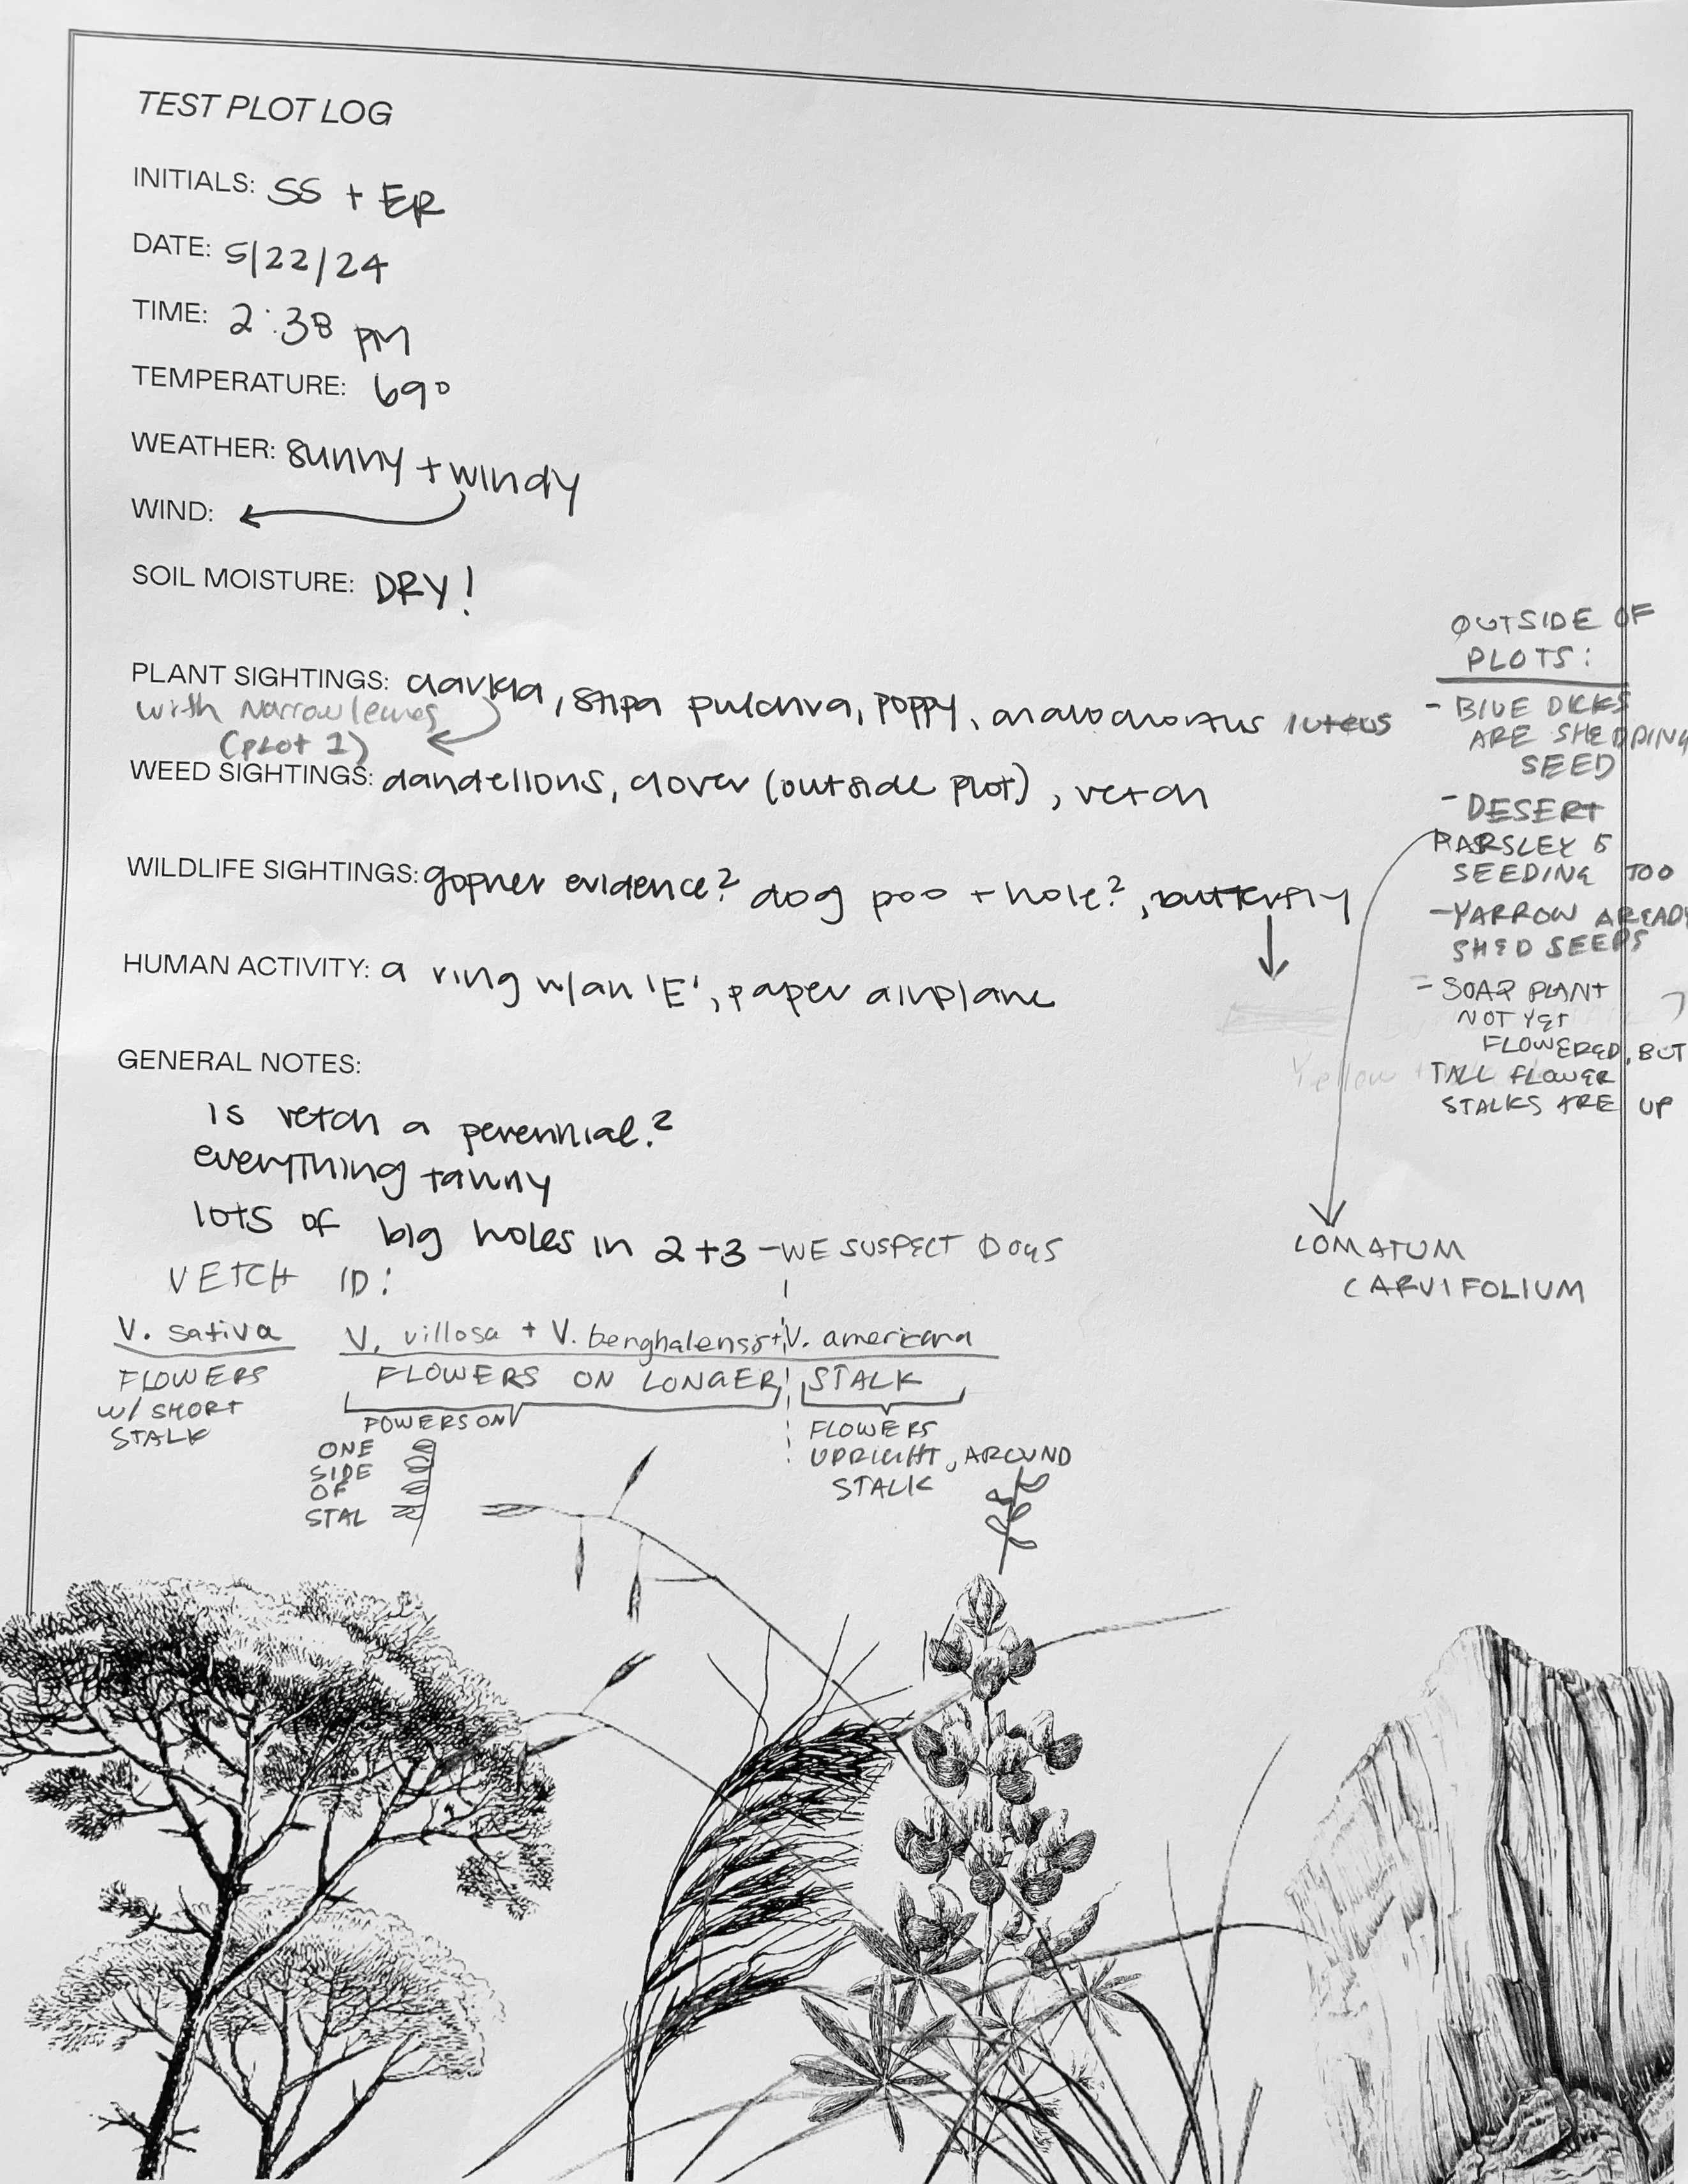 TEST PLOT LOG
INITIALS: SS + ER
DATE: 5/22/24
TIME: 2:38 PM
TEMPERATURE: 69°
WEATHER: sunny + windy
WIND:
SOIL MOISTURE: DRY!
PLANT SIGHTINGS: clarkia, stipa pulchra, poppy, luteus
with Narrow leaves
(PLOT 1)
WEED SIGHTINGS: dandelions, clover (outside plot), vetch
WILDLIFE SIGHTINGS: gopher evidence? dog poo + hole?, butterfly
HUMAN ACTIVITY: a ring w/an 'E', paper airplane
Yellow
GENERAL NOTES:
is vetch a perennial?
everything tawny
lots of big holes in 2+3 - WE SUSPECT DOGS
VETCH ID:
V. sativa
FLOWERS
W/ SHORT
STALK
V. villosa + V. benghalensis + V. americana
FLOWERS ON LONGER STALK
FOWERS ON
ONE
SIDE
OF
STAL
FLOWERS
UPRIGHT, AROUND
STALK
OUTSIDE OF
PLOTS:
- BLUE DICKS
ARE SHEDDING
SEED
- DESERT
PARSLEY IS
SEEDING TOO
- YARROW AREADY
SHED SEEDS
- SOAP PLANT
NOT YET
FLOWERED, BUT
TALL FLOWER
STALKS ARE UP
LOMATUM
CARVIFOLIUM